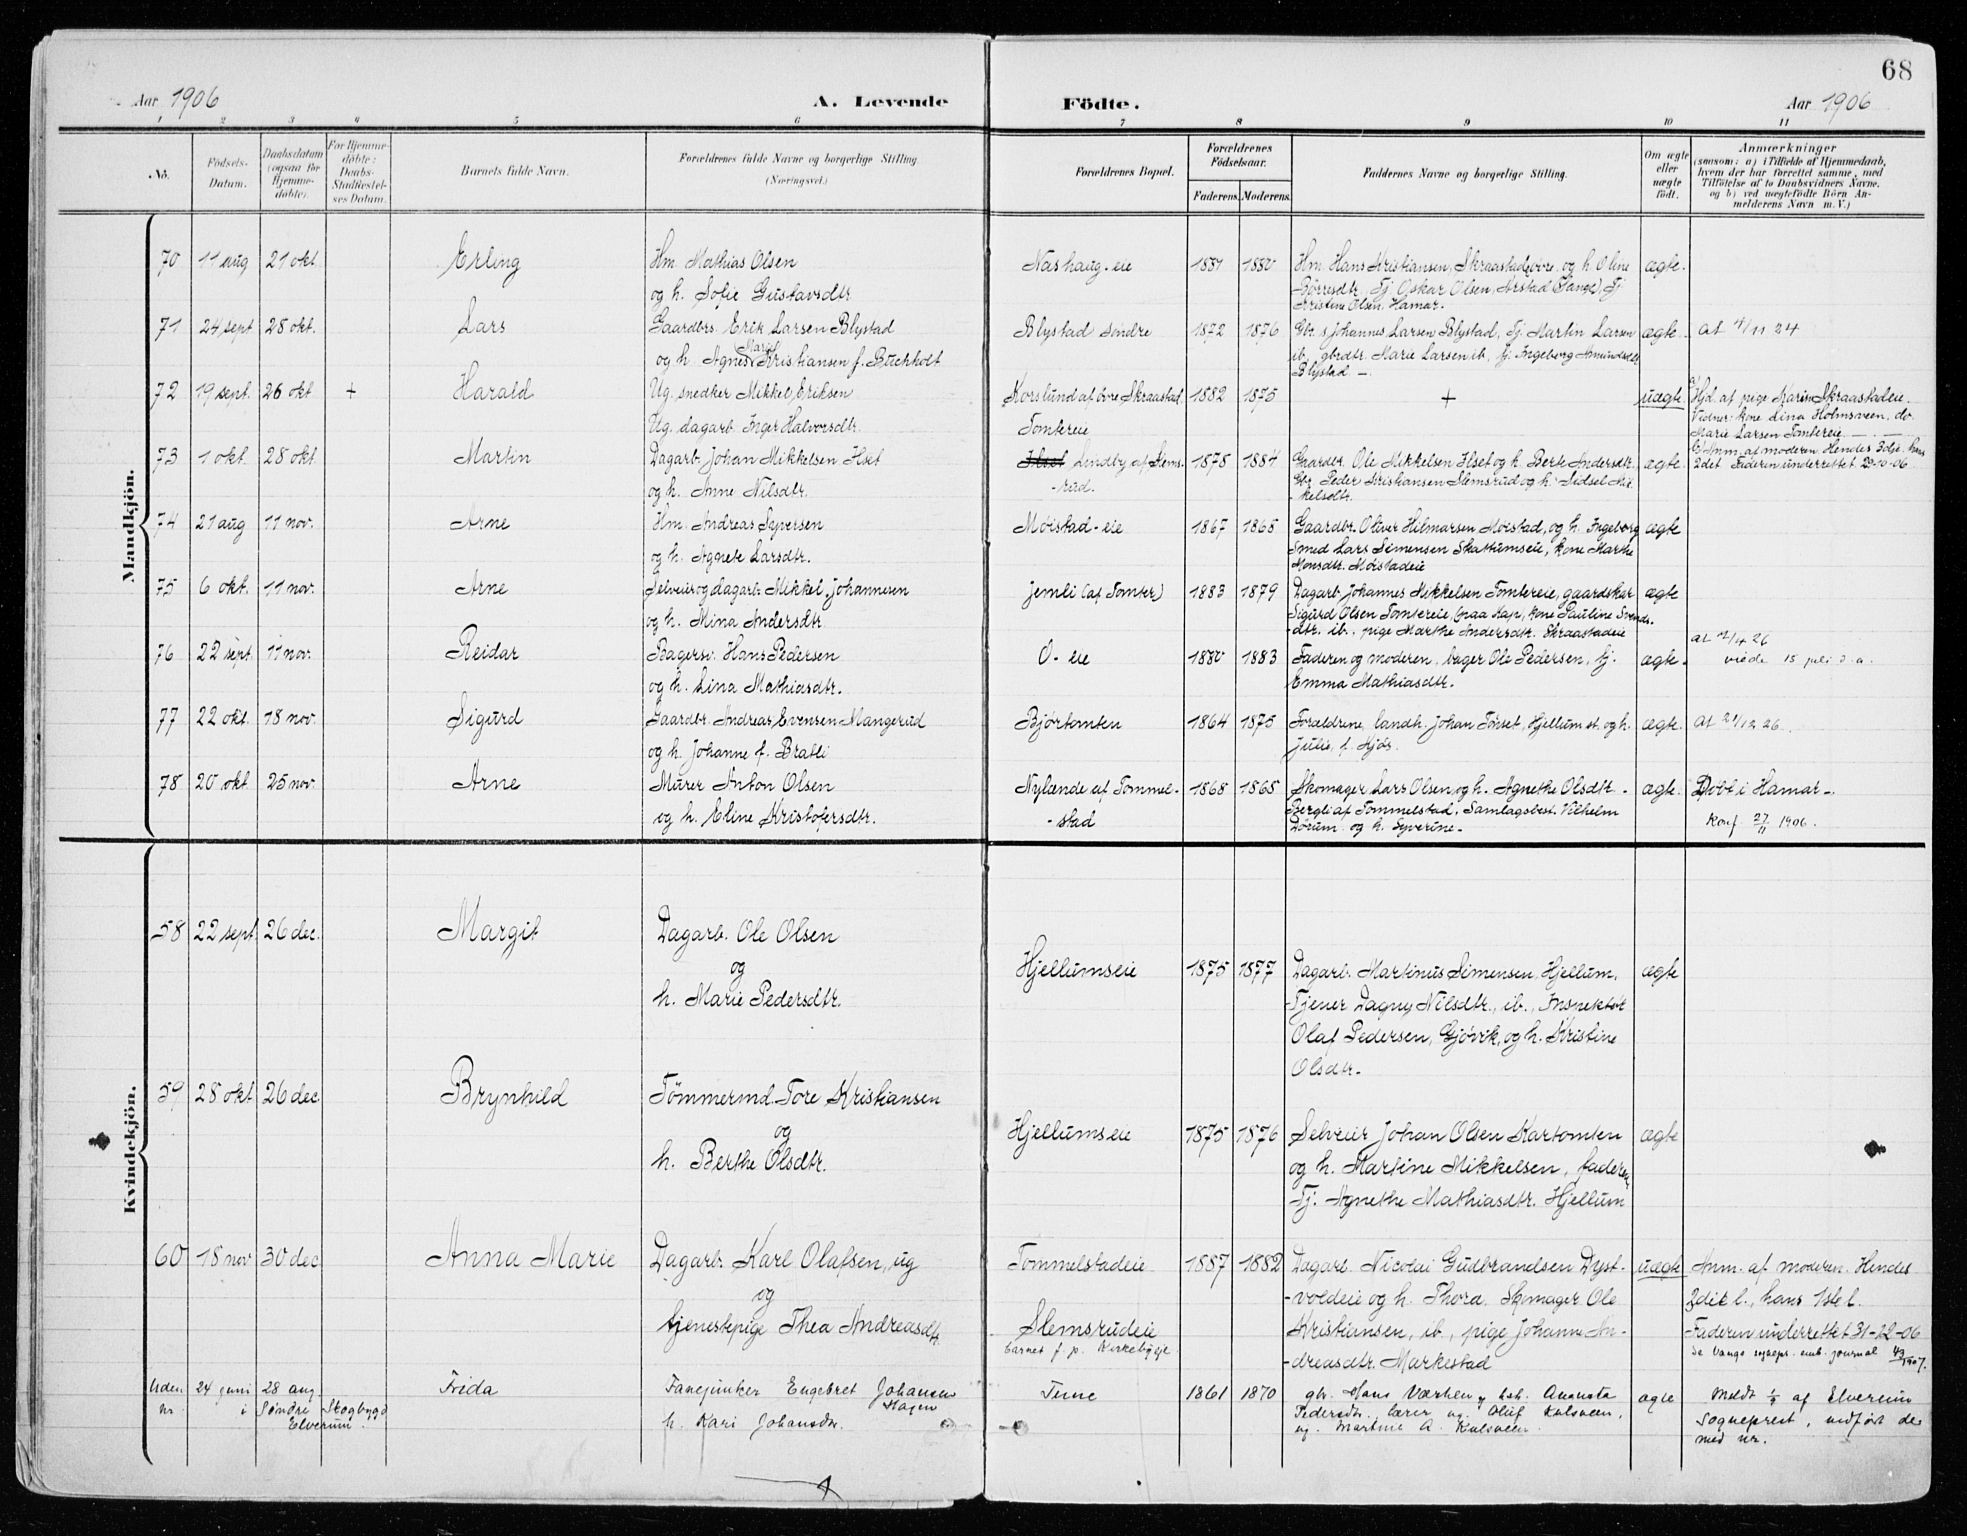 68
Aar 1906 A. Levende Födte. Aar 1906
1 2 3 4 5 6 7 8 9 10 11
No. Födsels-Datum. Daabsdatum (ogsaa for Hjemmedöbte). For Hjemmedöbte: Daabs-Stadfæstelses Datum. Barnets fulde Navn. Forældrenes fulde Navne og borgerlige Stilling. (Næringsvei.) Forældrenes Bopæl. Forældrenes Födselsaar. Faderens. Moderens. Faddernes Navne og borgerlige Stilling. Om ægte eller uægte födt. Anmærkninger (saasom: a) i Tilfælde af Hjemmedaab, hvem der har forrettet samme, med Tilföielse af to Daabsvidners Navne, og b) ved uegtefödte Börn Anmelderens Navn m. V.)
Mandkjön.
70 11 aug 21 okt. Erling Hm. Mathias Olsen Nashaug-eie 1881 1880 Hm. Hans Kristiansen, Skraastad övre, og h. Oline ægte.
og h. Sofie Gustavsdtr. Börresdtr., Tj. Oskar Olsen, Arstad (Vang), Tj.
Kristine Olsen, Hamar.
71 24 sept 28 okt. Lars Gaardbr. Erik Larsen Blystad Blystad søndre 1872 1876 Gbr. s. Johannes Larsen Blystad, Tj. Martin Larsen ægte. at 4/11 24
og h. Agnes Marie Kristiansen f. Buchholt ib., gbrdtr. Marie Larsen ib., Tj. Ingeborg Amundsdtr.
Blystad.
72 19 sept. 26 okt + Harald Ug. snedker Mikkel Eriksen Korslund af övre Skraastad. 1882 1875 + uægte a) Hjd. af pige Karin Skraastadeie.
Ug. dagarb. Inger Halvorsdtr. Tomtereie Vidner: kone Lina Holmsveen. do.
Marie Larsen Tomtereie
b) Anm. af moderen. Hendes 3dje, hans
73 1 okt. 28 okt. Martin Dagarb. Johan Mikkelsen Ilset Ilset Lindby af Slems- 1878 1884 Gaardbr. Ole Mikkelsen Ilset og h. Berte Andersdtr. ægte. 2det. Faderen underrettet 29-10-06.
og h. Anne Nilsdtr. -rud. Gbr. Peder Kristiansen Slemsrud og h. Sidsel Mik-
-kelsdtr.
74 21 aug 11 nov. Arne Hm. Andreas Syversen Möistad-eie 1867 1865 Gaardbr. Oliver Hilmarsen Möistad, og h. Ingeborg ægte
og h. Agnete Larsdtr. Smed Lars Simensen Skattumseie, kone Marthe
Monsdtr. Möistadeie
75 6 okt. 11 nov. Arne Selveier og dagarb. Mikkel Johannesen Jemli (af Tomter) 1883 1879 Dagarb. Johannes Mikkelsen Tomtereie, gaardskar ægte
og h. Mina Andersdtr. Sigurd Olsen Tomtereie, kone Pauline Svends-
-dtr. ib., pige Marthe Andersdtr. Skraastadeie
76 22 sept. 11 nov. Reidar Bagersv. Hans Pedersen O-eie 1880 1883 Faderen og moderen, bager Ole Pedersen, Tj. ægte. at 12/4 26
og h. Lina Mathiasdtr. Emma Mathiasdtr. viede 15 juli d. a.
77 22 okt. 18 nov. Sigurd Gaardbr. Andreas Evensen Mangerud Bjørtomten 1864 1875 Forældrene, landh. Johan Tönset, Hjellum st. og h. ægte. at 21/12 26.
og h. Johanne f. Bratli Julie, f. Hjös.
78 20 okt. 25 nov. Arne Murer Anton Olsen Nylænde af Tommel- 1868 1865 Skomager Lars Olsen og h. Agnethe Olsdtr. ægte. Döbt i Hamar.
og h. Eline Kristofersdtr. -stad Bergli af Tommelstad. Samlagsbest. Vilhelm Konf 27/11 1906.
Dörum og h. Syverine.
Kvindekjön.
58 22 sept. 26 dec. Margit Dagarb. Ole Olsen
og Hjellumseie 1875 1877 Dagarb. Martinus Simensen, Hjellum, ægte
h. Marie Pedersdtr. Tjener Dagny Nilsdtr., ib., Inspektör
Olaf Pedersen, Gjövik, og h. Kristine
Olsdtr.
59 28 okt 26 dec Brynhild Tömmermd. Tore Kristiansen
og Hjellumseie 1875 1876 Selveier Johan Olsen Kartomten ægte
h. Berthe Olsdtr. og h. Martine Mikkelsen, faderen,
Tj. Agnethe Mathiasdtr. Hjellum
60 18 nov 30 dec Anna Marie Dagarb. Karl Olafsen, ug Tommelstadeie 1887 1882 Dagarb. Nicolai Gudbrandsen Dyst- uægte Anm. af moderen. Hendes
og -voldeie og h. Thora. Skomager Ole 2det l., hans 1ste l.
tjenestepige Thea Andreasdtr. Slemsrudeie Kristiansen, ib., pige Johanne An- Faderen underrettet 31-12-06
barnet f. p. Kirkebyeie -dreasdtr. Markestad Se Vangs sognepr. emb. journal 43/1907.
Uden nr. 24 juni 28 aug. Frida Fanejunker Engebret Johansen Hagen Terne 1861 1870 gbr. Hans Værhen og hst. Augusta ægte Meldt af Elverum
i Søndre Skogbygd Elverum. h. Kari Johansdtr. Pedersdtr. lærer ug. Oluf Kulsveen, sogneprest, indført der
ug. Martine A. Kulsveen. med nr.